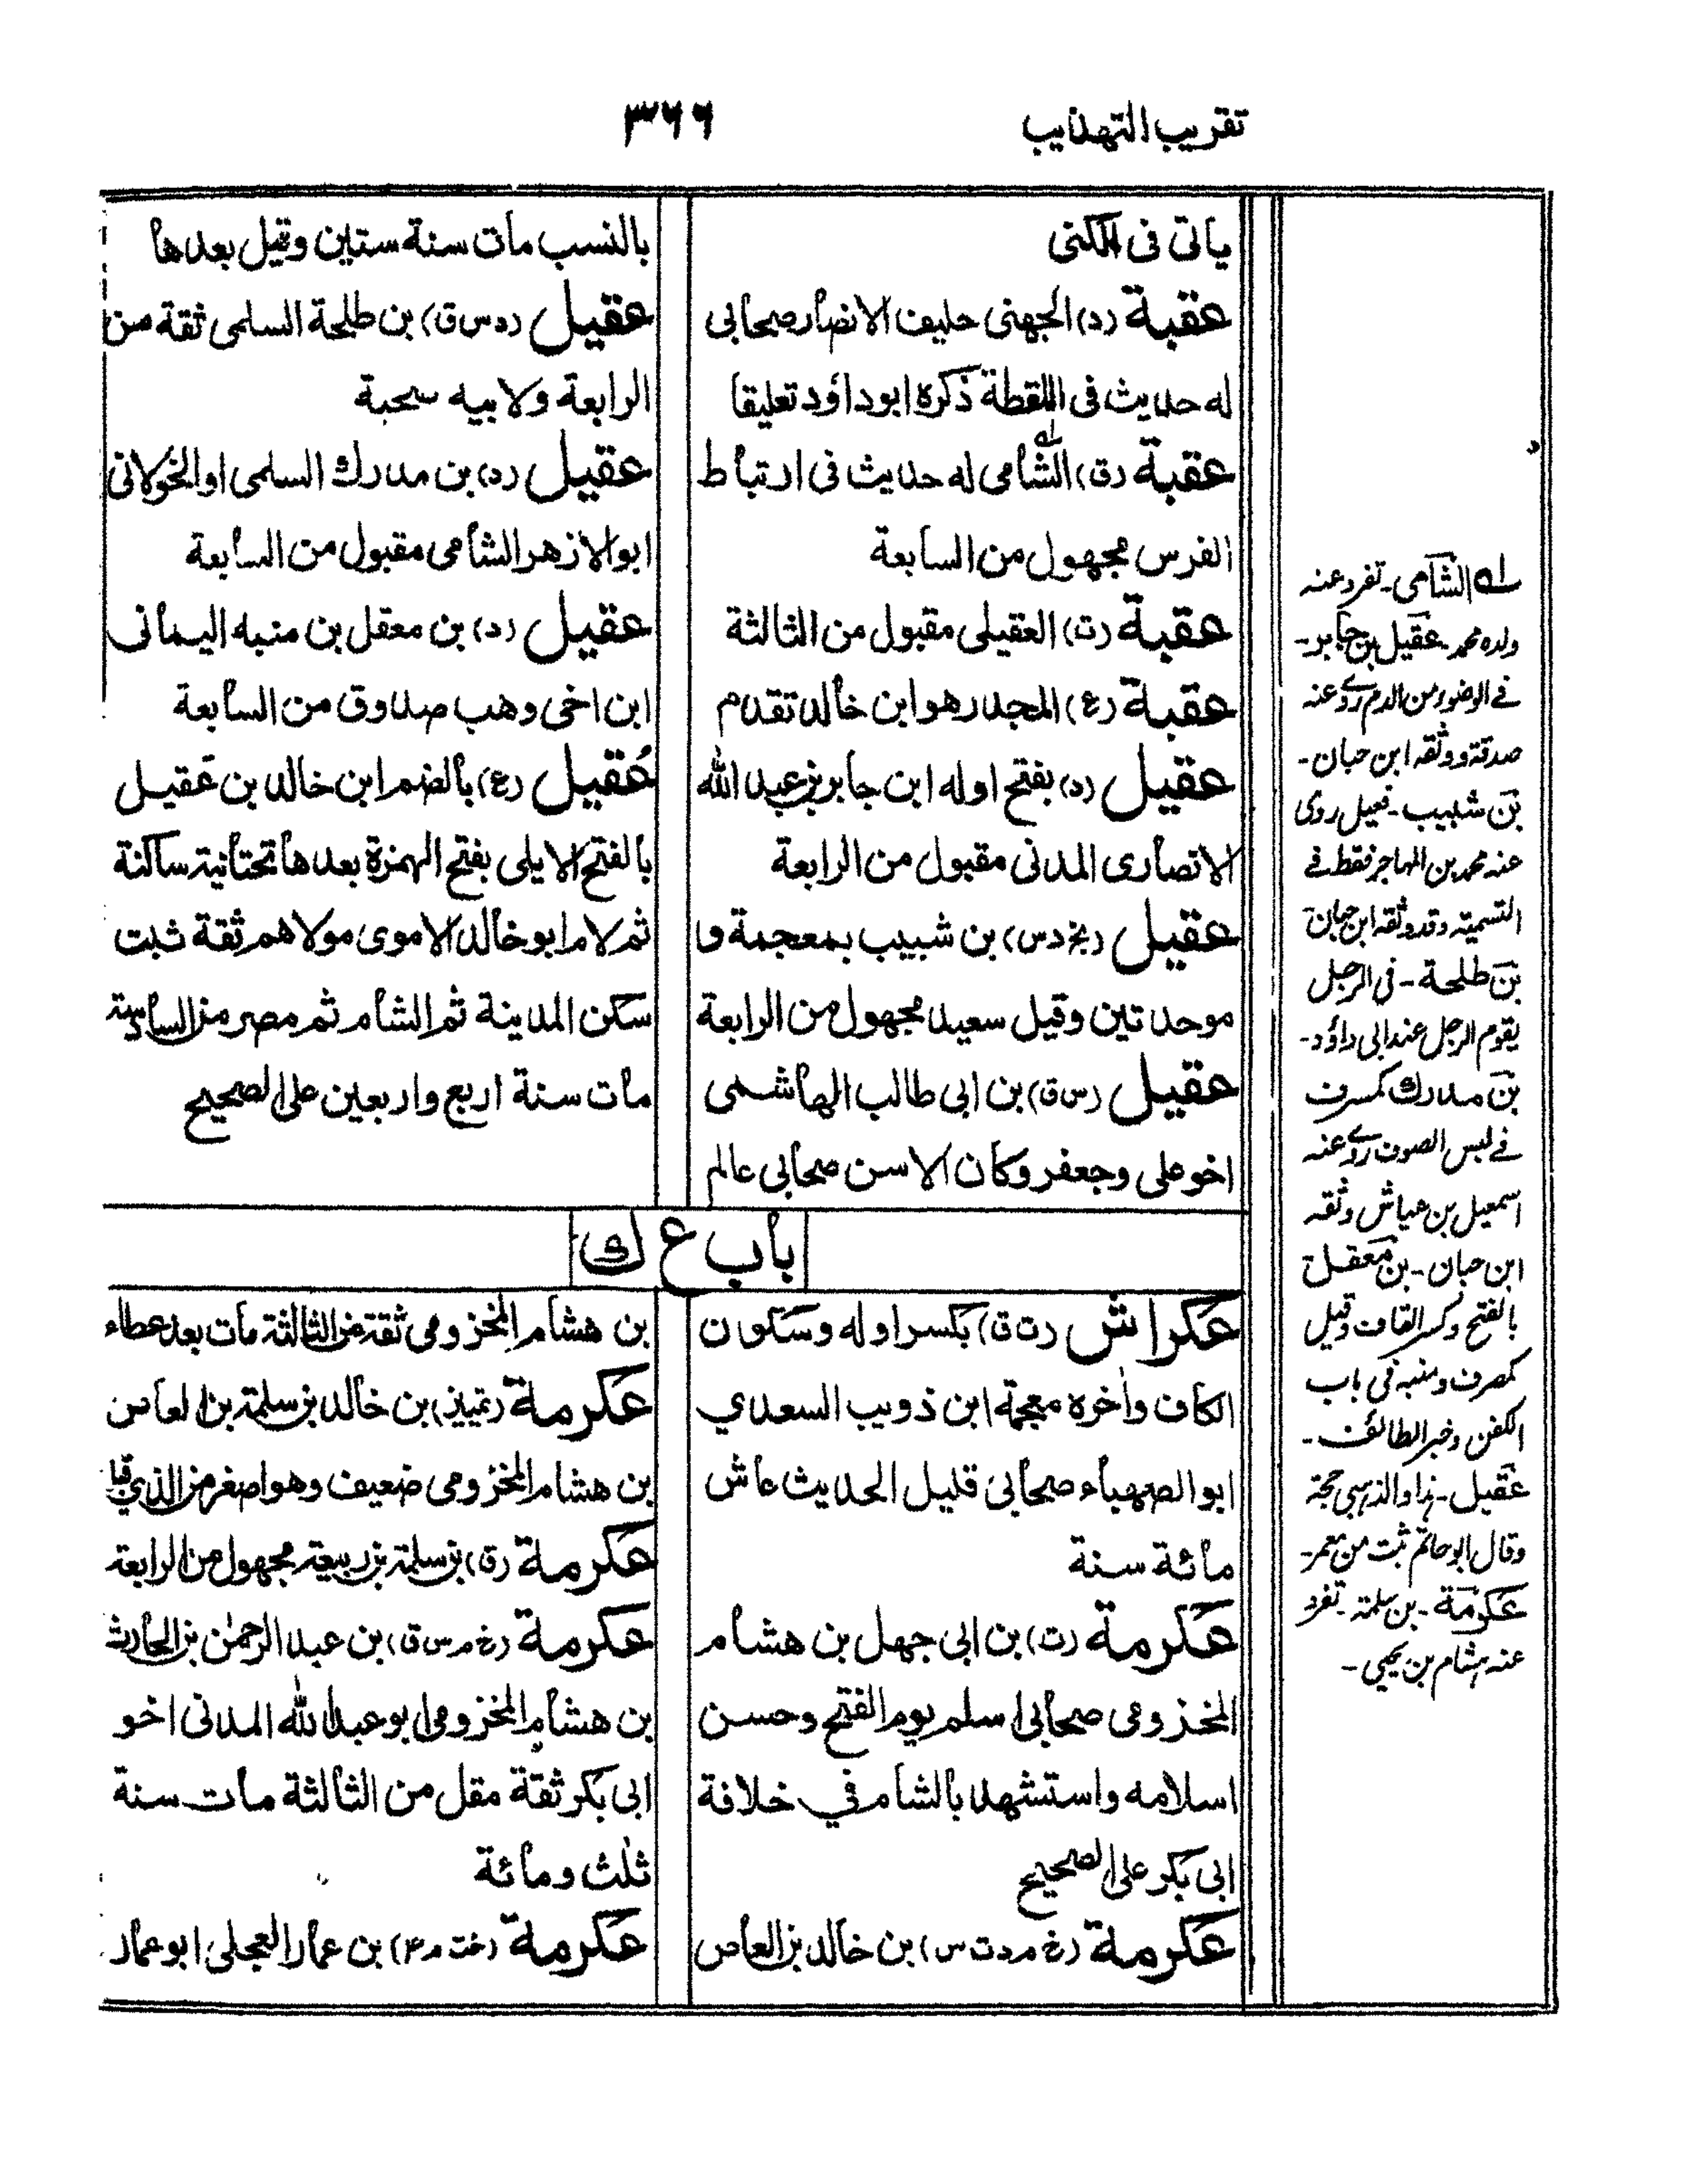 تقريب التهذيب
٣٦٦
يأتى فى الكنى
عقبة (د) الجهنى حليف الانصار صحابى
له حديث فى اللقطة ذكره ابوداؤد تعليقا
عقبة (ق) الشامى له حديث فى ارتباط
الفرس مجهول من السابعة
عقبة (ت) العقيلى مقبول من الثالثة
عقبة (ع) المجدر هو ابن خالد تقدم
عقيل (د) بفتح اوله ابن جابر بن عبد الله
الانصارى المدنى مقبول من الرابعة
عقيل (بخ د س) بن شبيب بمعجمة و
موحدتين وقيل سعيد مجهول من الرابعة
عقيل (س ق) بن ابى طالب الهاشمى
اخو على وجعفر وكان الاسن صحابى عالم
بالنسب مات سنة ستين وقيل بعدها
عقيل (د س ق) بن طلحة السلمى ثقة من
الرابعة ولابيه صحبة
عقيل (د) بن مدرك السلمى او الخولانى
ابو الازهر الشامى مقبول من السابعة
عقيل (د) بن معقل بن منبه اليمانى
ابن اخى وهب صدوق من السابعة
عُقيل (ع) بالضم ابن خالد بن عَقيل
بالفتح الايلى بفتح الهمزة بعدها تحتانية ساكنة
ثم لام ابو خالد الاموى مولاهم ثقة ثبت
سكن المدينة ثم الشام ثم مصر من السادسة
مات سنة اربع واربعين على الصحيح
باب ع ك
عكراش (ت ق) بكسر اوله وسكون
الكاف واخره معجمة ابن ذويب السعدي
ابو الصهباء صحابى قليل الحديث عاش
مائة سنة
عكرمة (ت) بن ابى جهل بن هشام
المخزومى صحابى اسلم يوم الفتح وحسن
اسلامه واستشهد بالشام في خلافة
ابى بكر على الصحيح
عكرمة (خ م د ت س) بن خالد بن العاص
بن هشام المخزومى ثقة من الثالثة مات بعد عطاء
عكرمة (تمييز) بن خالد بن سلمة بن العاص
بن هشام المخزومى ضعيف وهو اصغر من الذي قبله
عكرمة (ق) بن سلمة بن ربيعة مجهول من الرابعة
عكرمة (خ م س ق) بن عبد الرحمٰن بن الحارث
بن هشام المخزومى ابو عبد الله المدنى اخو
ابى بكر ثقة مقل من الثالثة مات سنة
ثلٰث ومائة
عكرمة (خت م ٤) بن عمار العجلى ابو عمار
لـه الشامى - تفرد عنه
ولده محمد - عقيل بن جابر -
فے الوضوء من الدم روے عنه
صدقة ووثقه ابن حبان -
بن شبيب - قيل روى
عنه محمد بن المهاجر فقط فے
التسمية وقد وثقه ابن حبان
بن طلحة - فى الرجل
يقوم الرجل عند ابى داؤد -
بن مدرك كمسرف
فے لبس الصوف روے عنه
اسمعيل بن عياش وثقه
ابن حبان - بن معقل
بالفتح وكسر القاف وقيل
كمصرف ومنبه فى باب
الكفن وخبر الطائف -
عقيل - زاد الذهبى حجة
وقال ابو حاتم ثبت من معمر -
عكرمة - بن سلمة - تفرد
عنه هشام بن يحيى -